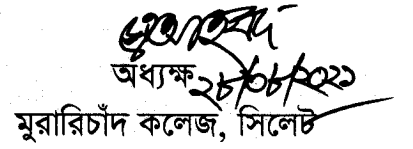 অধ্যক্ষ
২৮/০৮/২০২১
মুরারিচাঁদ কলেজ, সিলেট